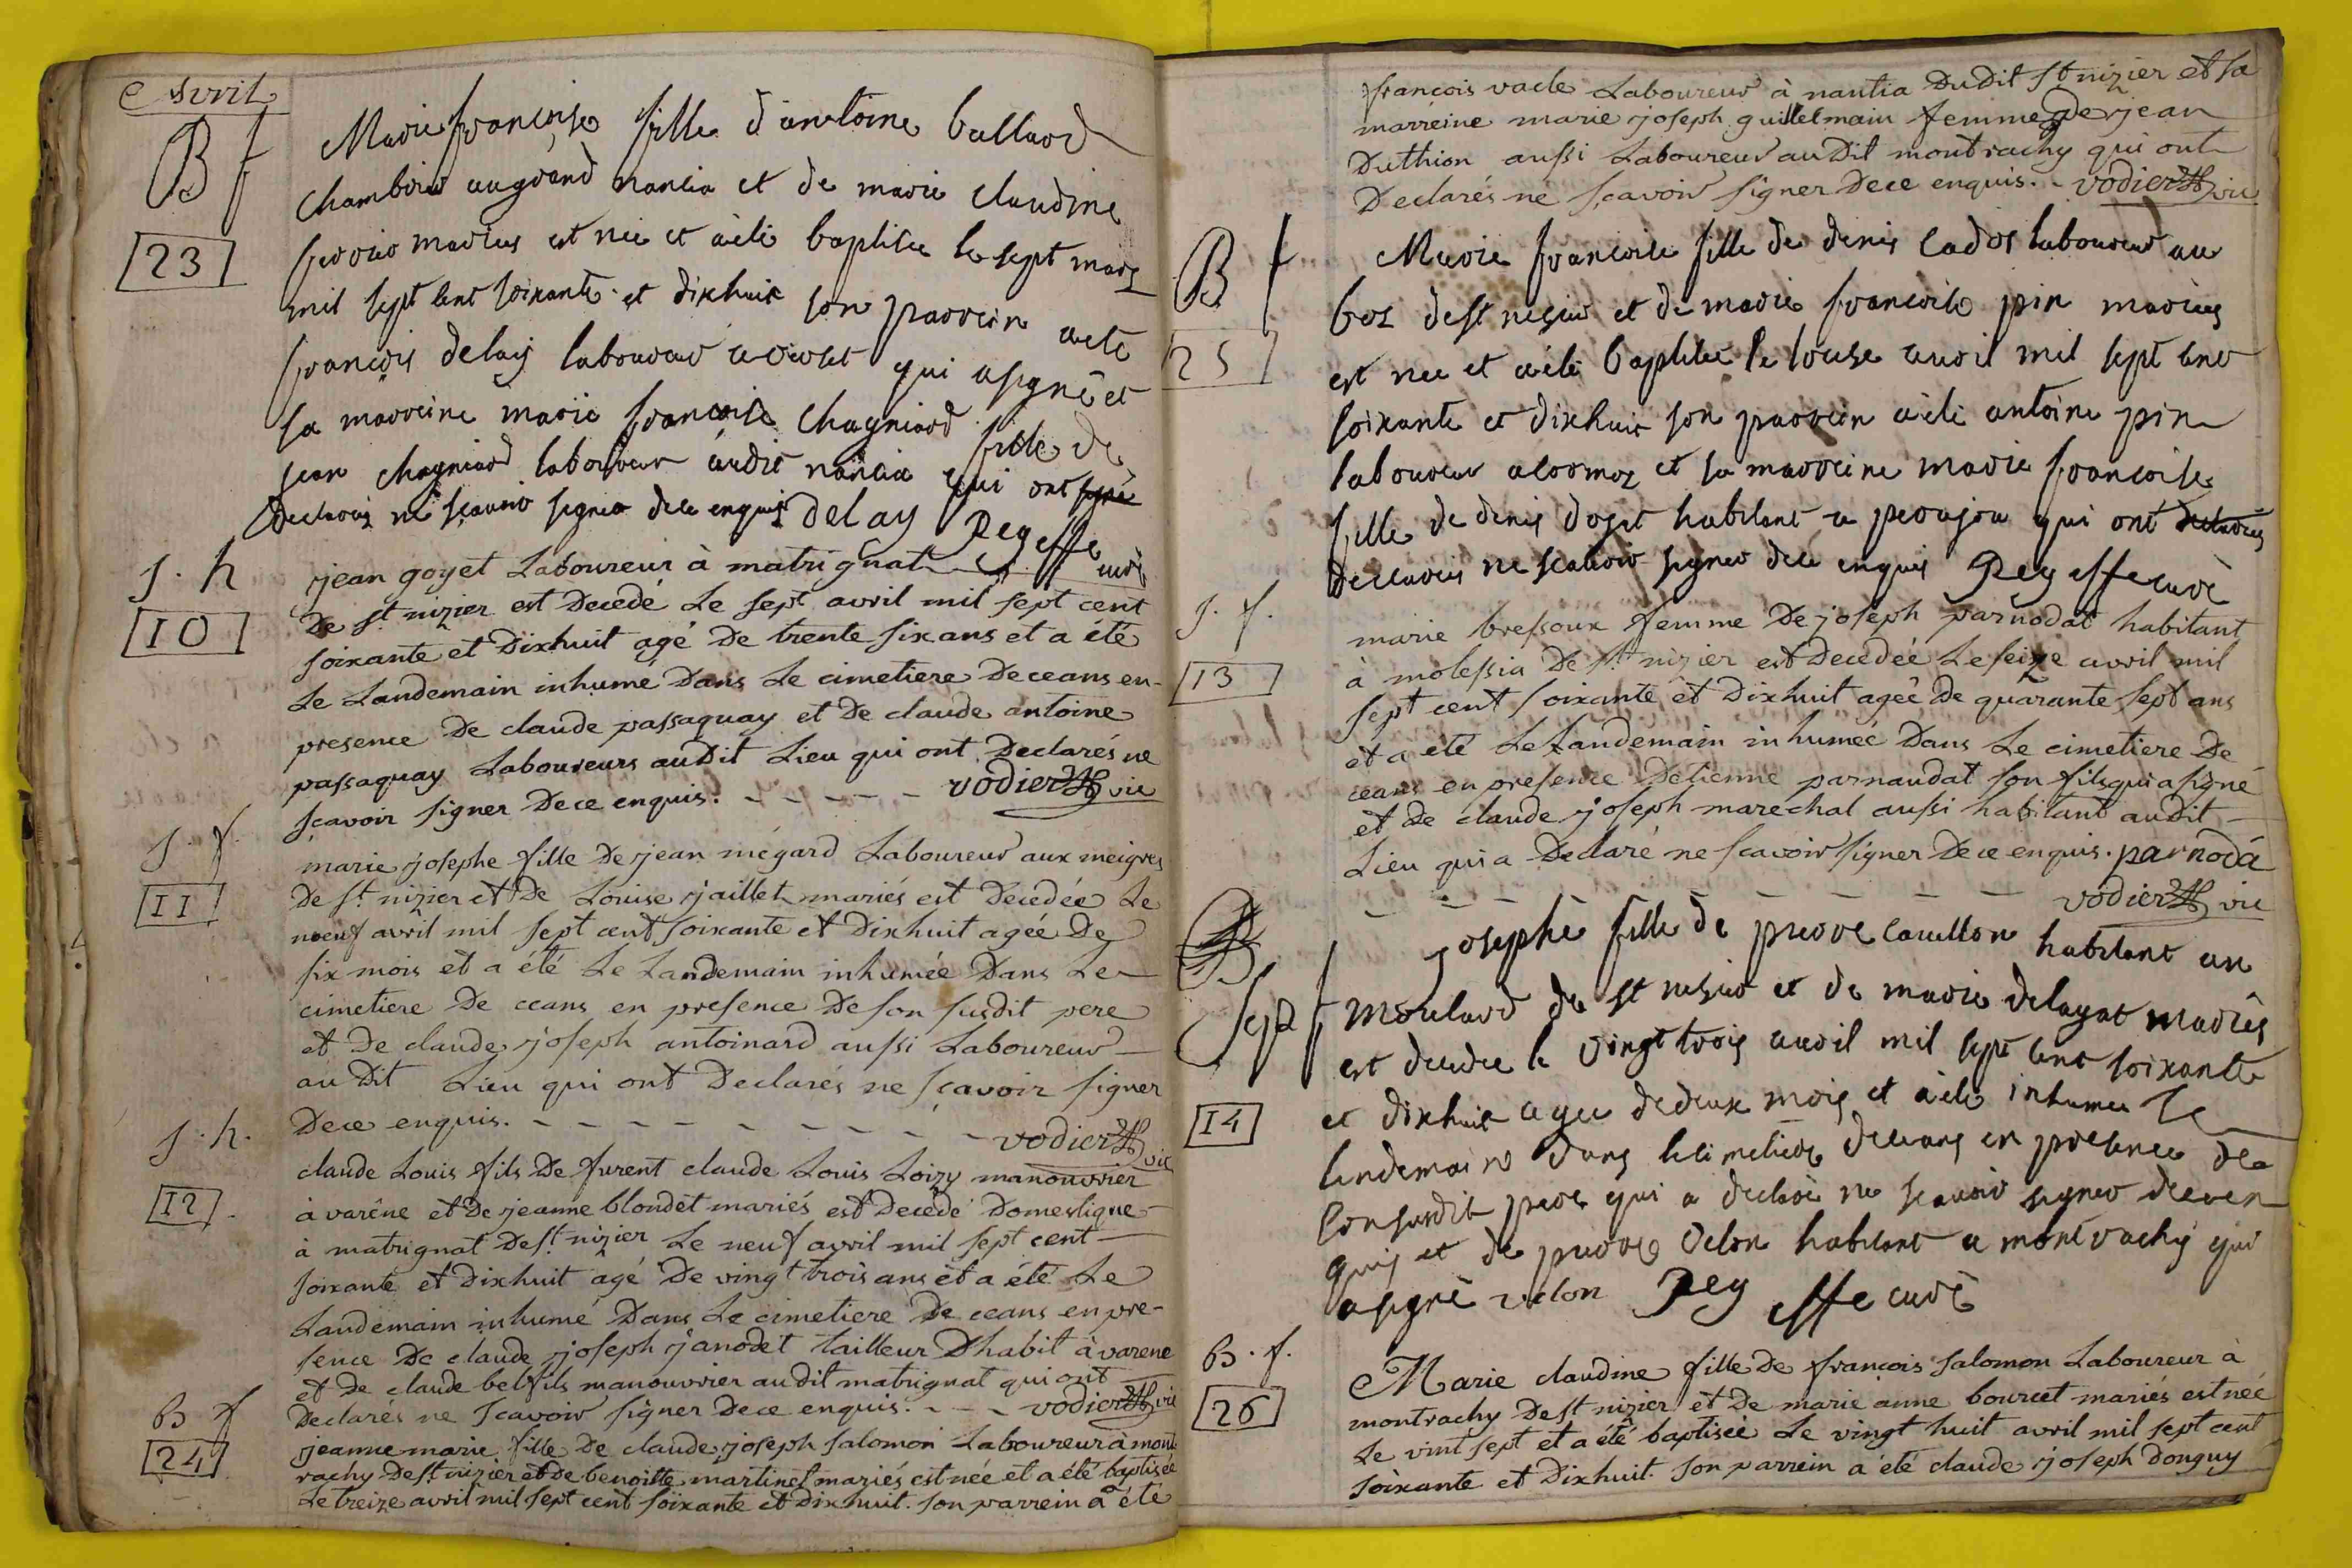 Avril
B f
23
Marie françoise fille d'antoine ballard
chambrier au grand nancia et de marie claudine
mariés est née et a été baptisée le sept mars
mil sept cent soixante et dixhuit son parrein a été
françois delay laboureur a viriset qui a signé et
sa marreine marie françoise chagniard fille de
jean chagniard laboureur audit nancia qui ont
declarés ne sçavoir signer dece enquis delay Rey effe curé
s. h
10
jean goyet Laboureur à matrignat
De st nizier est Decedé Le sept avril mil sept cent
soixante et Dixhuit agé De trente six ans et a été
Le Landemain inhumé Dans Le cimetiere De ceans en
presence De claude passaquay et De claude antoine
passaquay Laboureurs audit Lieu qui ont Declarés ne
sçavoir signer Dece enquis. - - - - - vodier vic
s. f
11
marie josephe fille De jean mégard Laboureur aux meigres
De st. nizier et De Louise jaillet mariés est Decedée Le
noeuf avril mil sept cent soixante et Dixhuit agée De
six mois et a été Le Landemain inhumée Dans Le
cimetiere De ceans en presence De son susdit pere
et De claude joseph antoinard aussi Laboureur
au Dit Lieu qui ont Declarés ne sçavoir signer
Dece enquis. - - - - - - - - - vodier vic
s. h.
12
claude Louis fils De furent claude Louis Loizy manouvrier
à varêne et De jeanne blondet mariés est Decedé Domestique
à matrignat De st. nizier Le neuf avril mil sept cent
soixante et Dixhuit agé De vingt trois ans et a été Le
Landemain inhumé Dans Le cimetiere De ceans en pre-
sence De claude joseph janodet tailleur D'habit à varene
et De claude belfils manouvrier audit matrignat qui ont
Declarés ne sçavoir signer Dece enquis. - - - vodier vic
B f
24
jeanne marie fille De claude joseph salomon Laboureur à mont
rachy De st nizier et De benoitte martinet mariés est née et a été baptisée
Le treize avril mil sept cent soixante et Dixhuit. son parrein a été
françois vacle Laboureur à nantia Dudit st nizier et sa
marréine marie joseph guillelmain femme De jean
Duthion aussi Laboureur auDit montrachy qui ont
Declarés ne sçavoir signer Dece enquis. - vodier vic
B f
25
Marie françoise fille de denis cador laboureur au
boz de st nezier et de marie françoise pin mariés
est née et a été baptisée le touse avril mil sept cent
soixante et dixhuit son parrein a été antoine pin
laboureur a cormoz et sa marreine marie françoise
fille de denis dogit habitant a peroujou qui ont declarés
declarés ne scavoir signer dece enquis Rey effe curé
s. f.
13
marie bressoux femme De joseph parnodat habitant
à molessia De st nizier est Decedée Le seize avril mil
sept cent soixante et Dixhuit ageé De quarante sept ans
et a été Le Landemain inhumée Dans Le cimetiere De
ceans en presence Detienne parnaudat son fils qui a signé
et De claude joseph marechal aussi habitant audit
Lieu qui a Declaré ne sçavoir signer Dece enquis. parnodá
- - - - - - - - vodier vic
Sep f
14
josephè fille de pierre caullon habitant au
moulard de st nesier et de marie delayat mariés
est decedee le vingt trois avril mil sept cent soixante
et dixhuit agee de deux mois et a été inhumee le
lendemain dans le cimetiere deceans en presence de
son susdit pere qui a declaré ne scavoir signer dece en
quis et de pierre velon habitant a montrachy qui
a signé velon Rey effe curé
B. f.
26
Marie claudine fille De françois salomon Laboureur à
montrachy De st nizier et De marie anne bourcet mariés est née
Le vint sept et a été baptisée Le vingt huit avril mil sept cent
soixante et Dixhuit. son parrein a été claude joseph Donguy